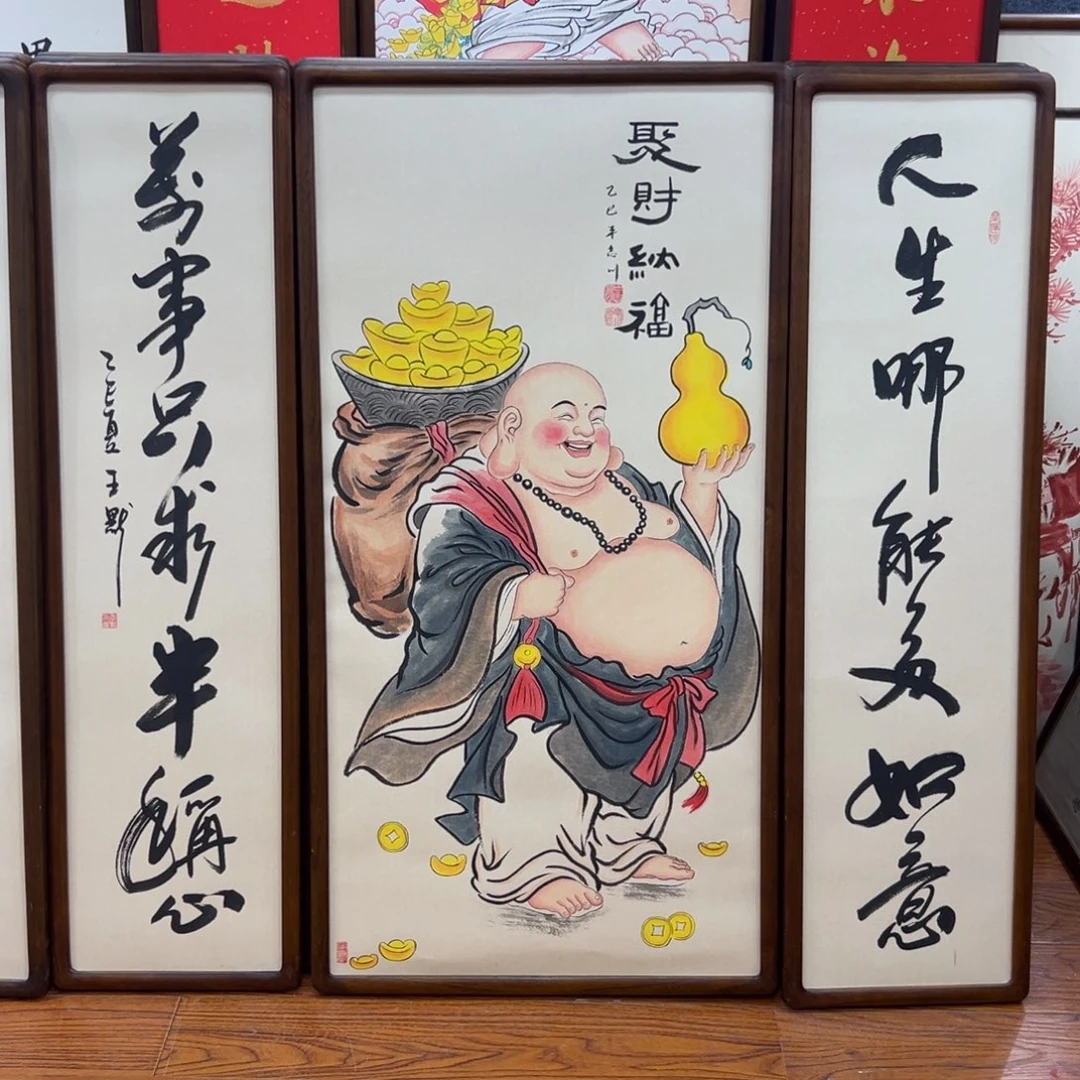 人生哪能多如意
萬事只求半稱心
乙巳夏 王默
聚財納福
乙巳年志川